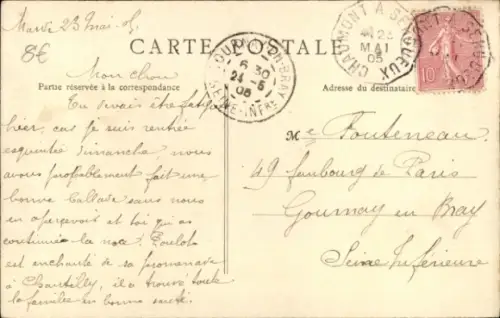 Mardi 23 Mai 05
8€
CARTE POSTALE
Partie réservée à la correspondance
Adresse du destinataire
CHAUMONT A SERQUEUX
23
MAI
05
GOURNAY-EN-BRAY
6 30
24-5
05
SEINE-INFRE
10
Mon chou
Tu devais être
hier, car je suis rentrée
esquintée dimanche nous
avons probablement fait une
bonne ballade sans nous
en apercevoir et toi qui as
continué la noce! Loulot
est enchanté de sa promenade
à Chantilly, il a trouvé toute
la famille en bonne santé.
Me Fouteneau
49 faubourg de Paris
Gournay en Bray
Seine Inférieure